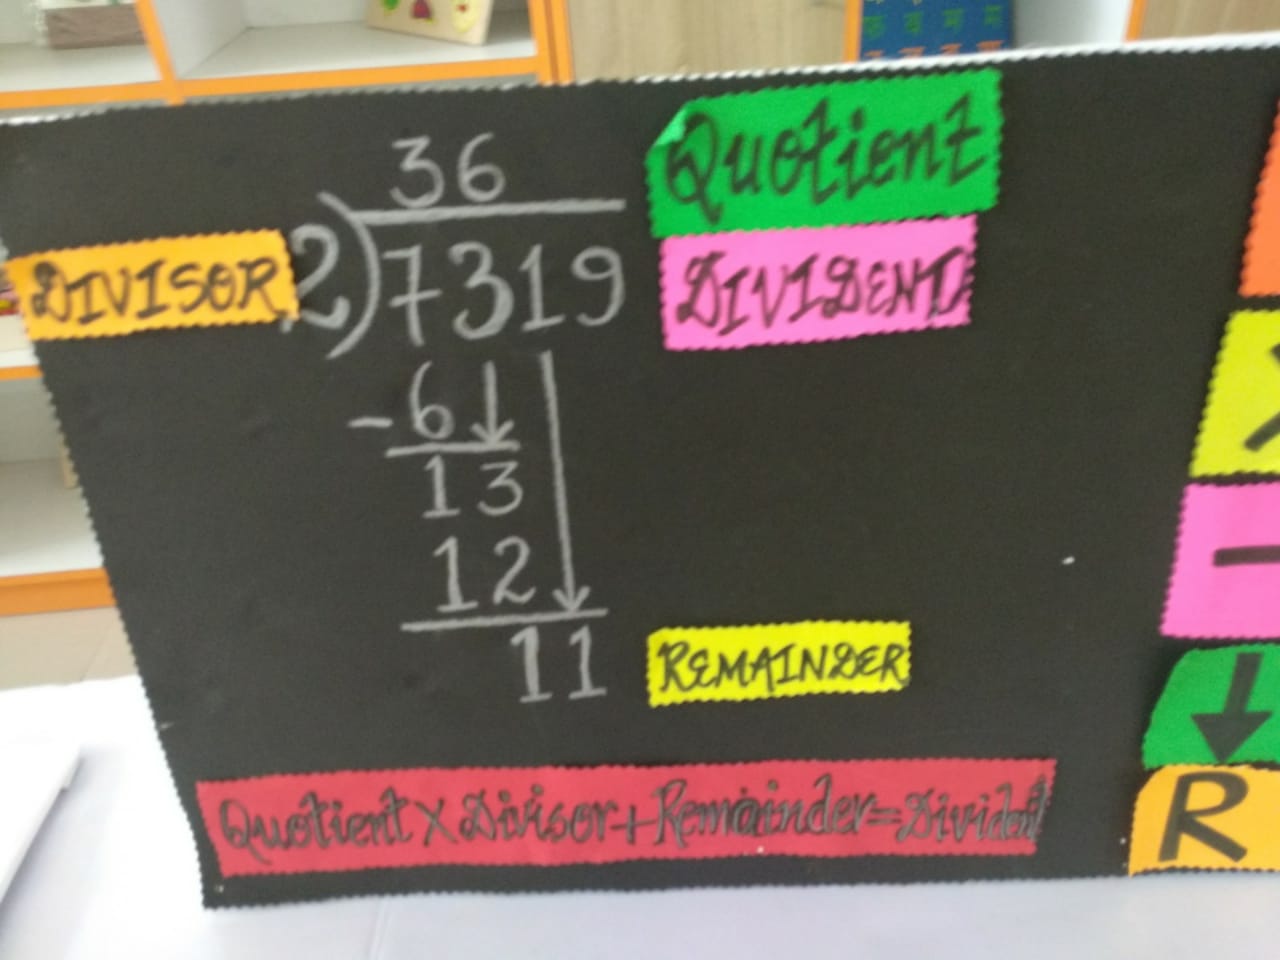 36
Quotient
DIVISOR
2)7319
DIVIDENT
-6
13
12
11
REMAINDER
Quotient X Divisor+Remainder=Divident
-
R